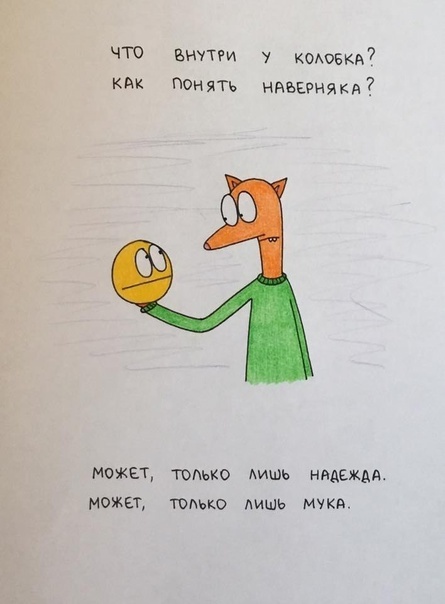 ЧТО ВНУТРИ У КОЛОБКА?
КАК ПОНЯТЬ НАВЕРНЯКА?
МОЖЕТ, ТОЛЬКО ЛИШЬ НАДЕЖДА.
МОЖЕТ, ТОЛЬКО ЛИШЬ МУКА.